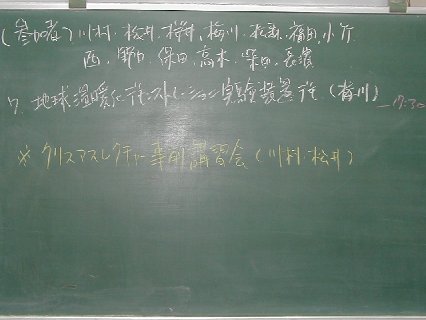 (参加者) 川村、松井、桜井、梅川、松家、福田、小竹
西、野口、保田、高木、柴田、長濃
7. 地球温暖化 デモンストレーション実験装置 (青川) —17:30
※ クリスマスレクチャー事前講習会 (川村・松井)